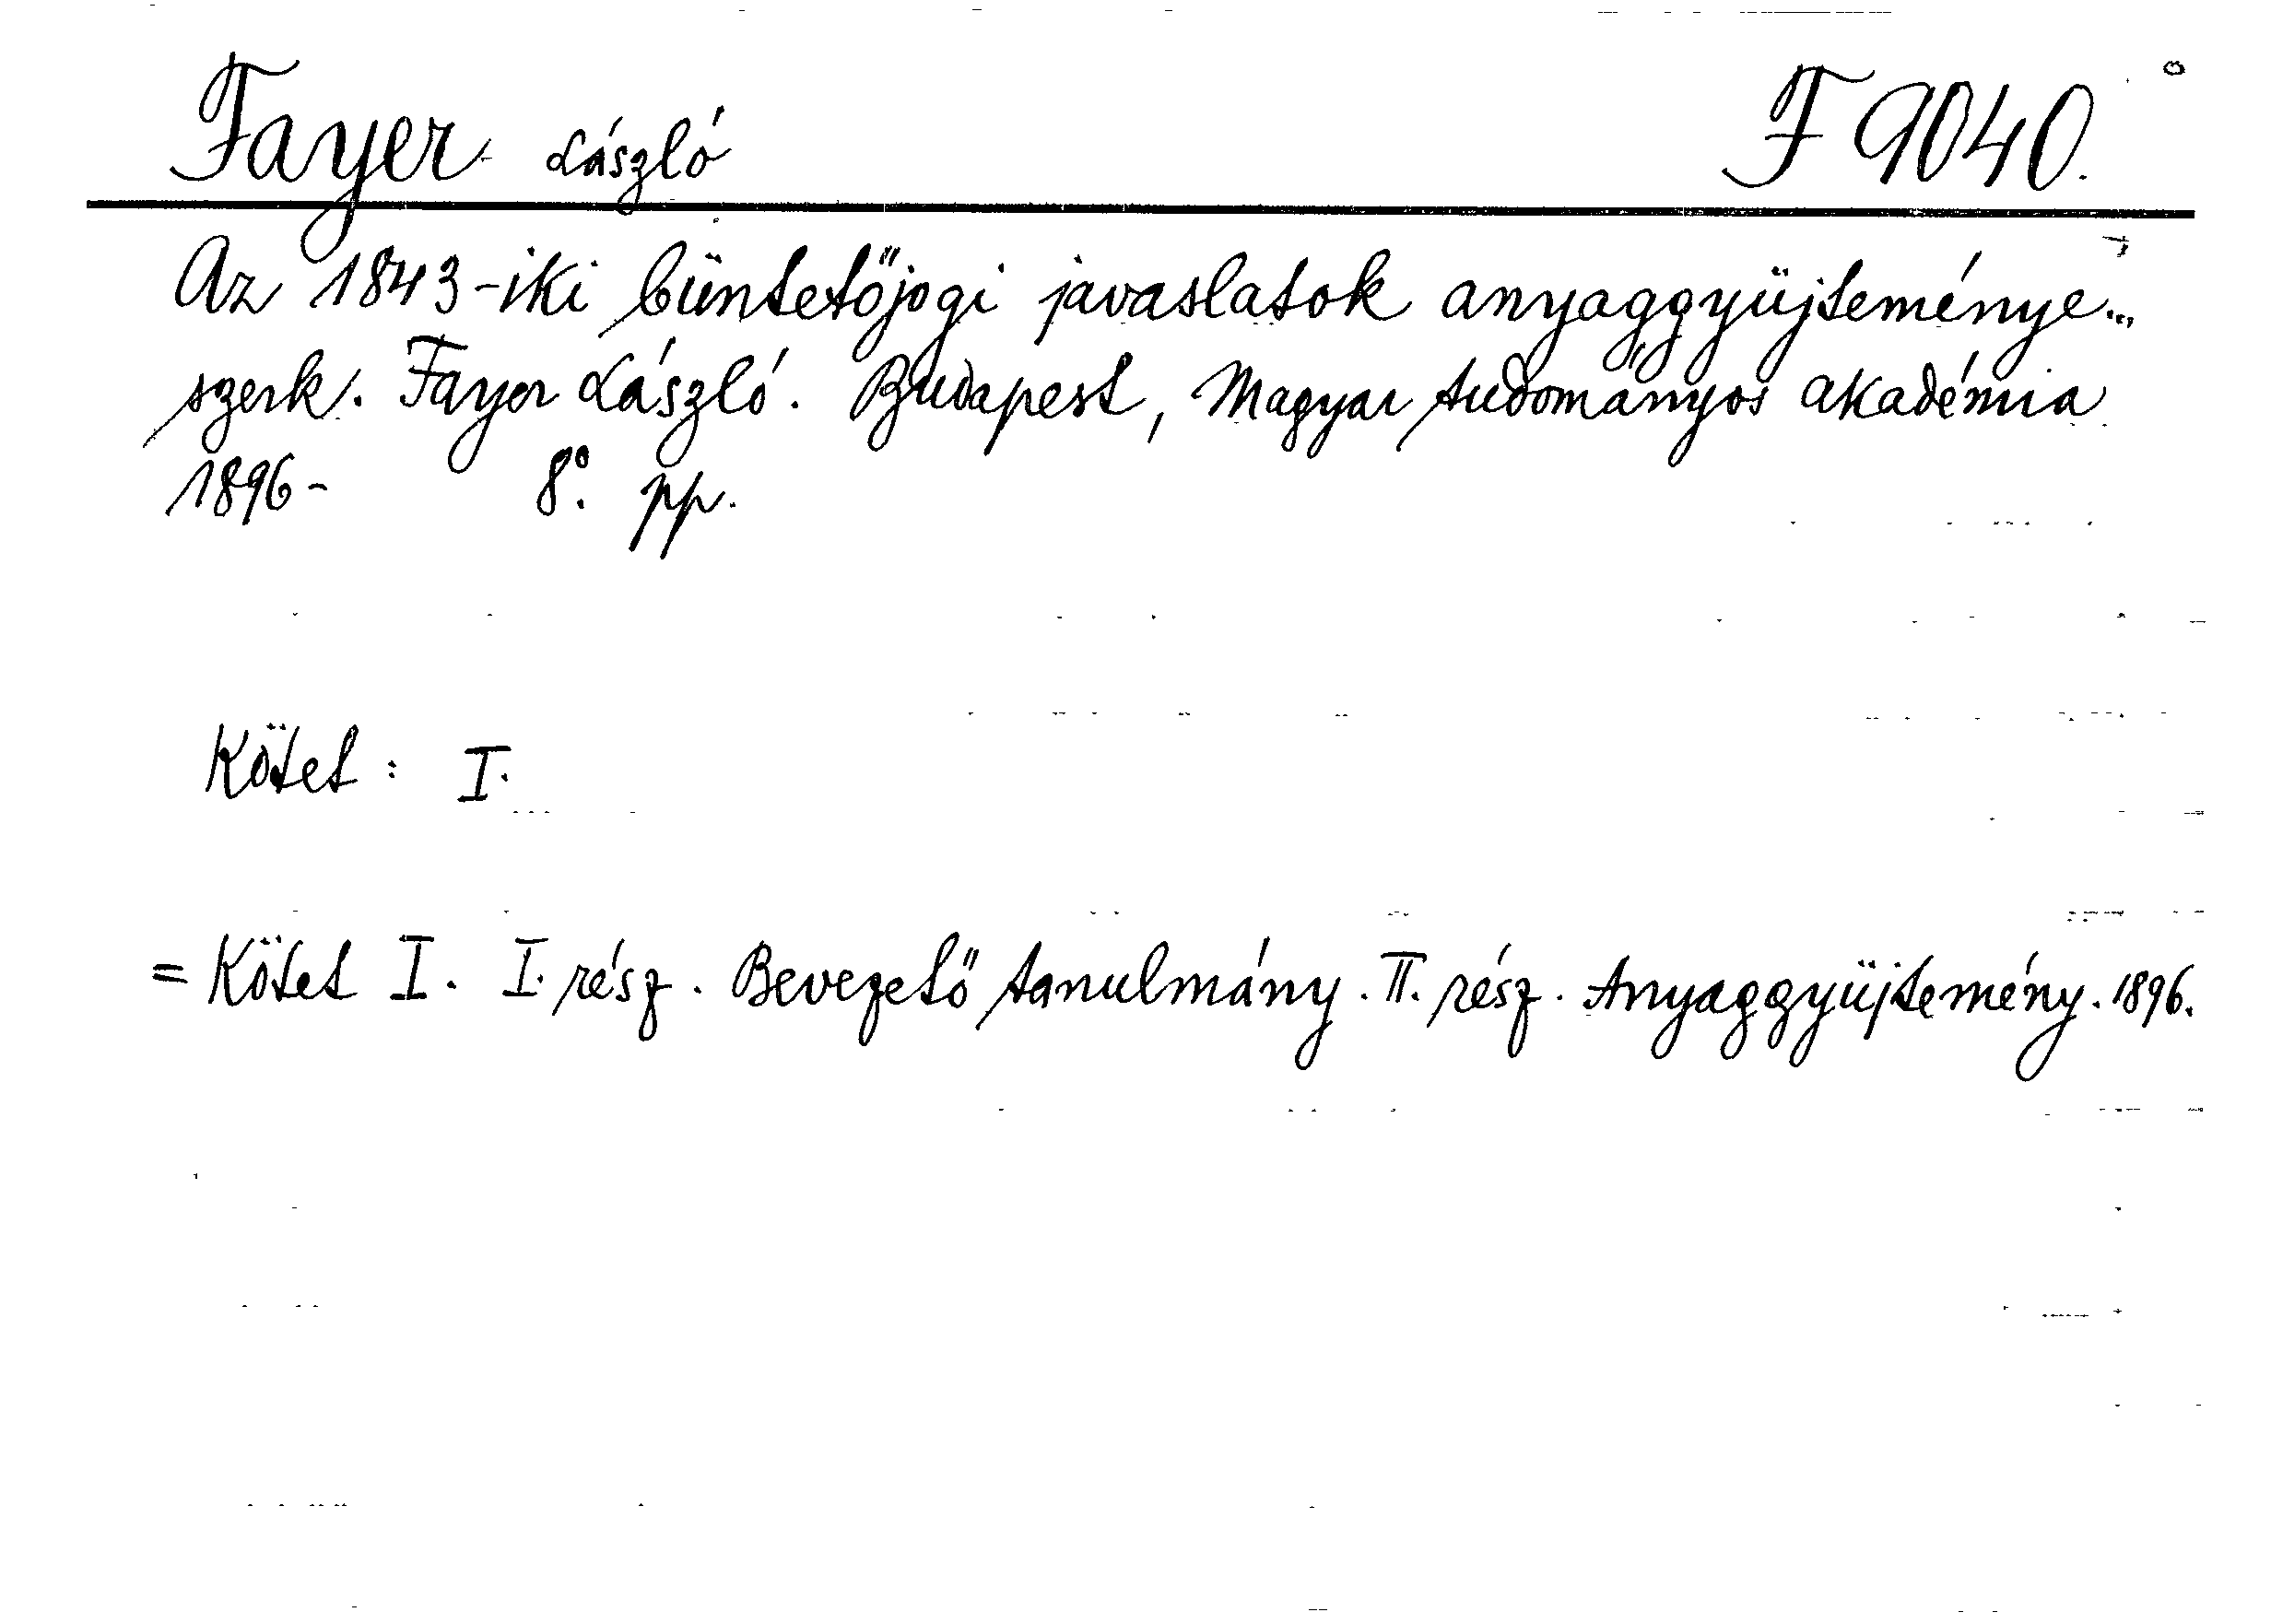 Fayer László F 9040.
Az 1843-iki büntetőjogi javaslatok anyaggyüjteménye...
szerk. Fayer László. Budapest, Magyar tudományos akadémia
1896- 8° pp.
Kötet: I.
= Kötet I. I. rész. Bevezető tanulmány. II. rész. Anyaggyüjtemény. 1896.